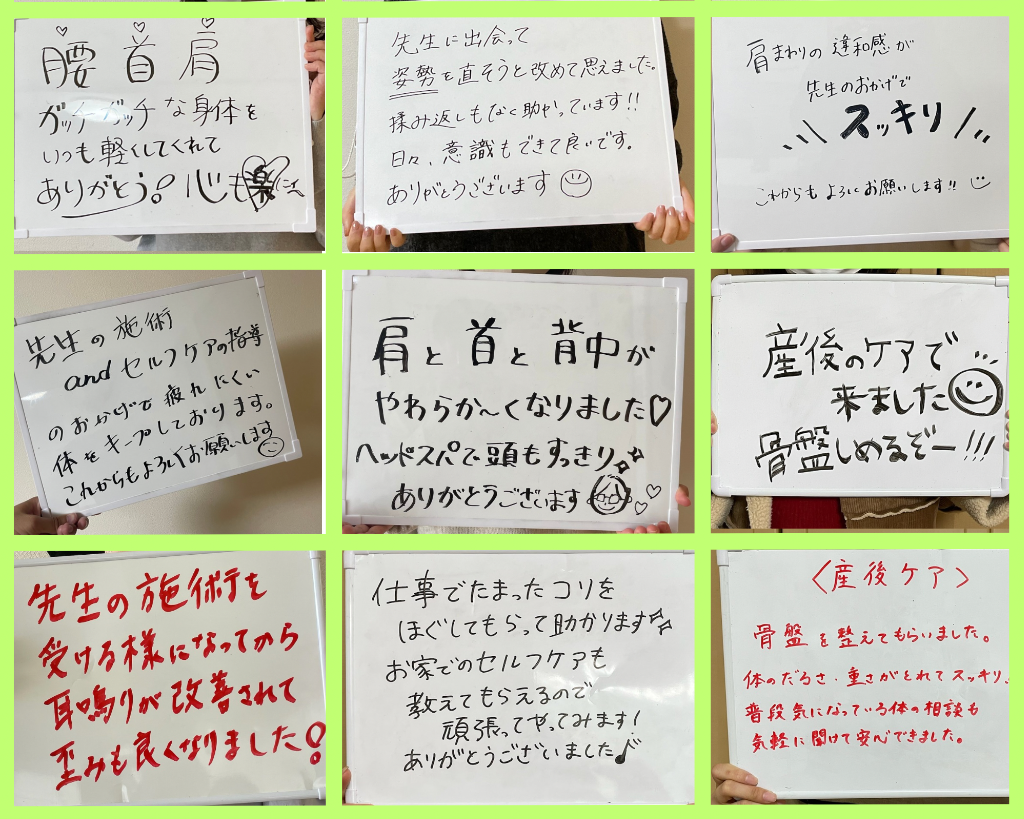 腰 首 肩
ガッチガッチな身体を
いつも軽くしてくれて
ありがとう! 心も楽に〜
先生に出会って
姿勢を直そうと改めて思えました。
揉み返しもなく助かっています!!
日々、意識もできて良いです。
ありがとうございます
肩まわりの違和感が
先生のおかげで
スッキリ
これからもよろしくお願いします!!
先生の施術
and セルフケアの指導
のおかげで疲れにくい
体をキープしております。
これからもよろしくお願いします
肩と首と背中が
やわらか〜くなりました♡
ヘッドスパで頭もすっきり
ありがとうございます
産後のケアで
来ました
骨盤しめるぞー!!!
先生の施術を
受ける様になってから
耳鳴りが改善されて
歪みも良くなりました!
仕事でたまったコリを
ほぐしてもらって助かります
お家でのセルフケアも
教えてもらえるので
頑張ってやってみます!
ありがとうございました♪
〈産後ケア〉
骨盤を整えてもらいました。
体のだるさ・重さがとれてスッキリ。
普段気になっている体の相談も
気軽に聞けて安心できました。